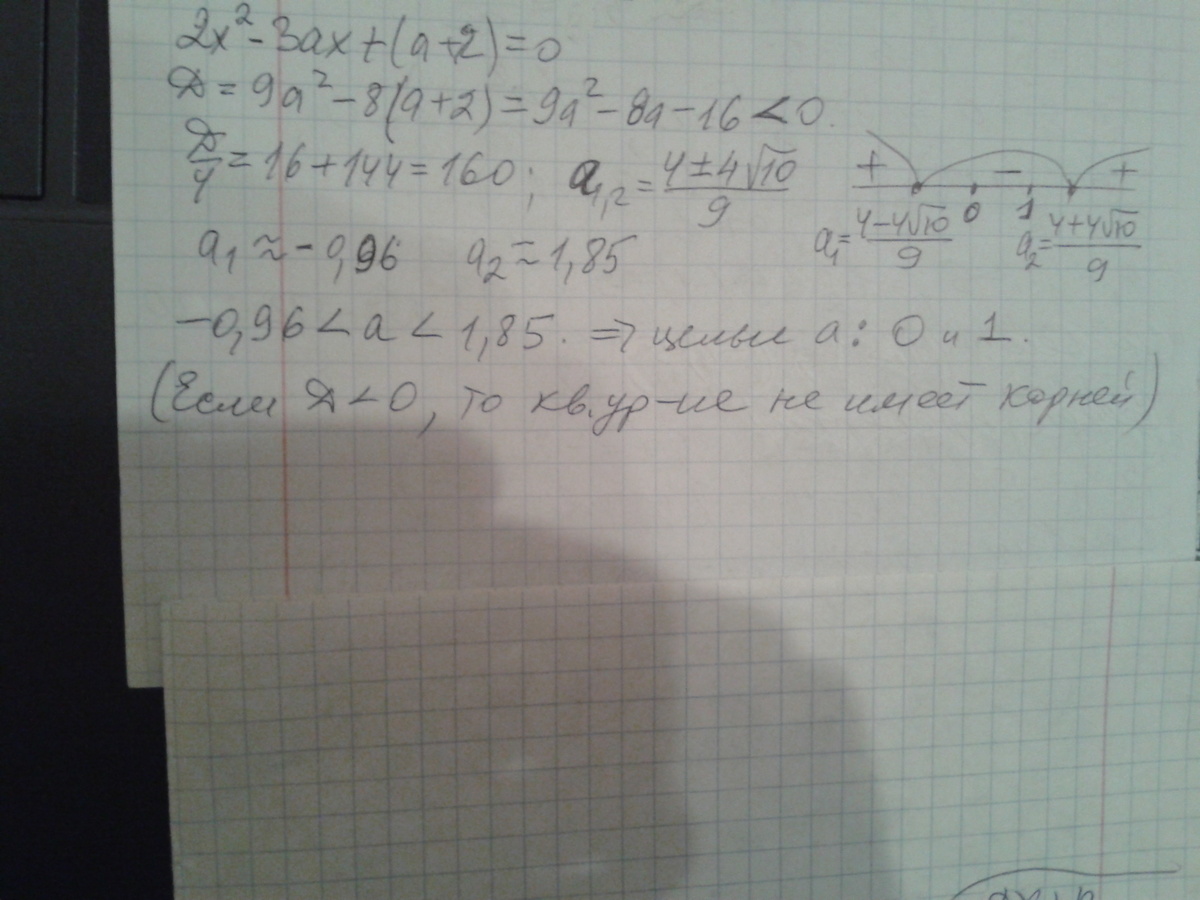 2x²-3ax+(a+2)=0
D=9a²-8(a+2)=9a²-8a-16<0.
D/4=16+144=160; a₁,₂=(4±4√10)/9
+ - +
0 1
a₁=(4-4√10)/9 a₂=(4+4√10)/9
a₁≈-0,96 a₂≈1,85
-0,96<a<1,85. ⇒ целые a: 0 и 1.
(Если D<0, то кв.ур-ие не имеет корней)